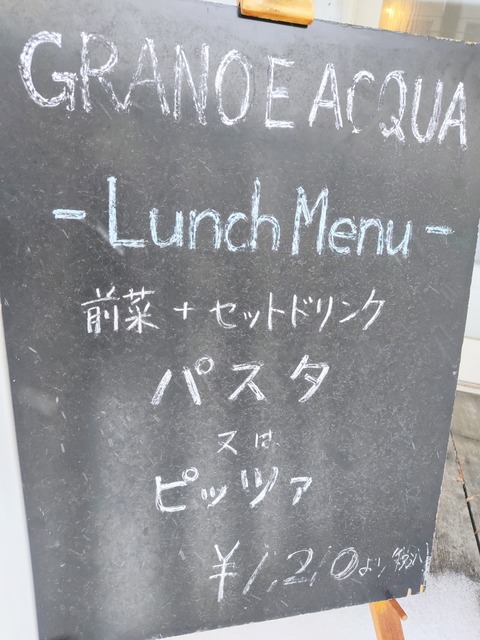 GRANO E ACQUA
- Lunch Menu -
前菜 + セットドリンク
パスタ
又は
ピッツァ
¥1,210より(税込)